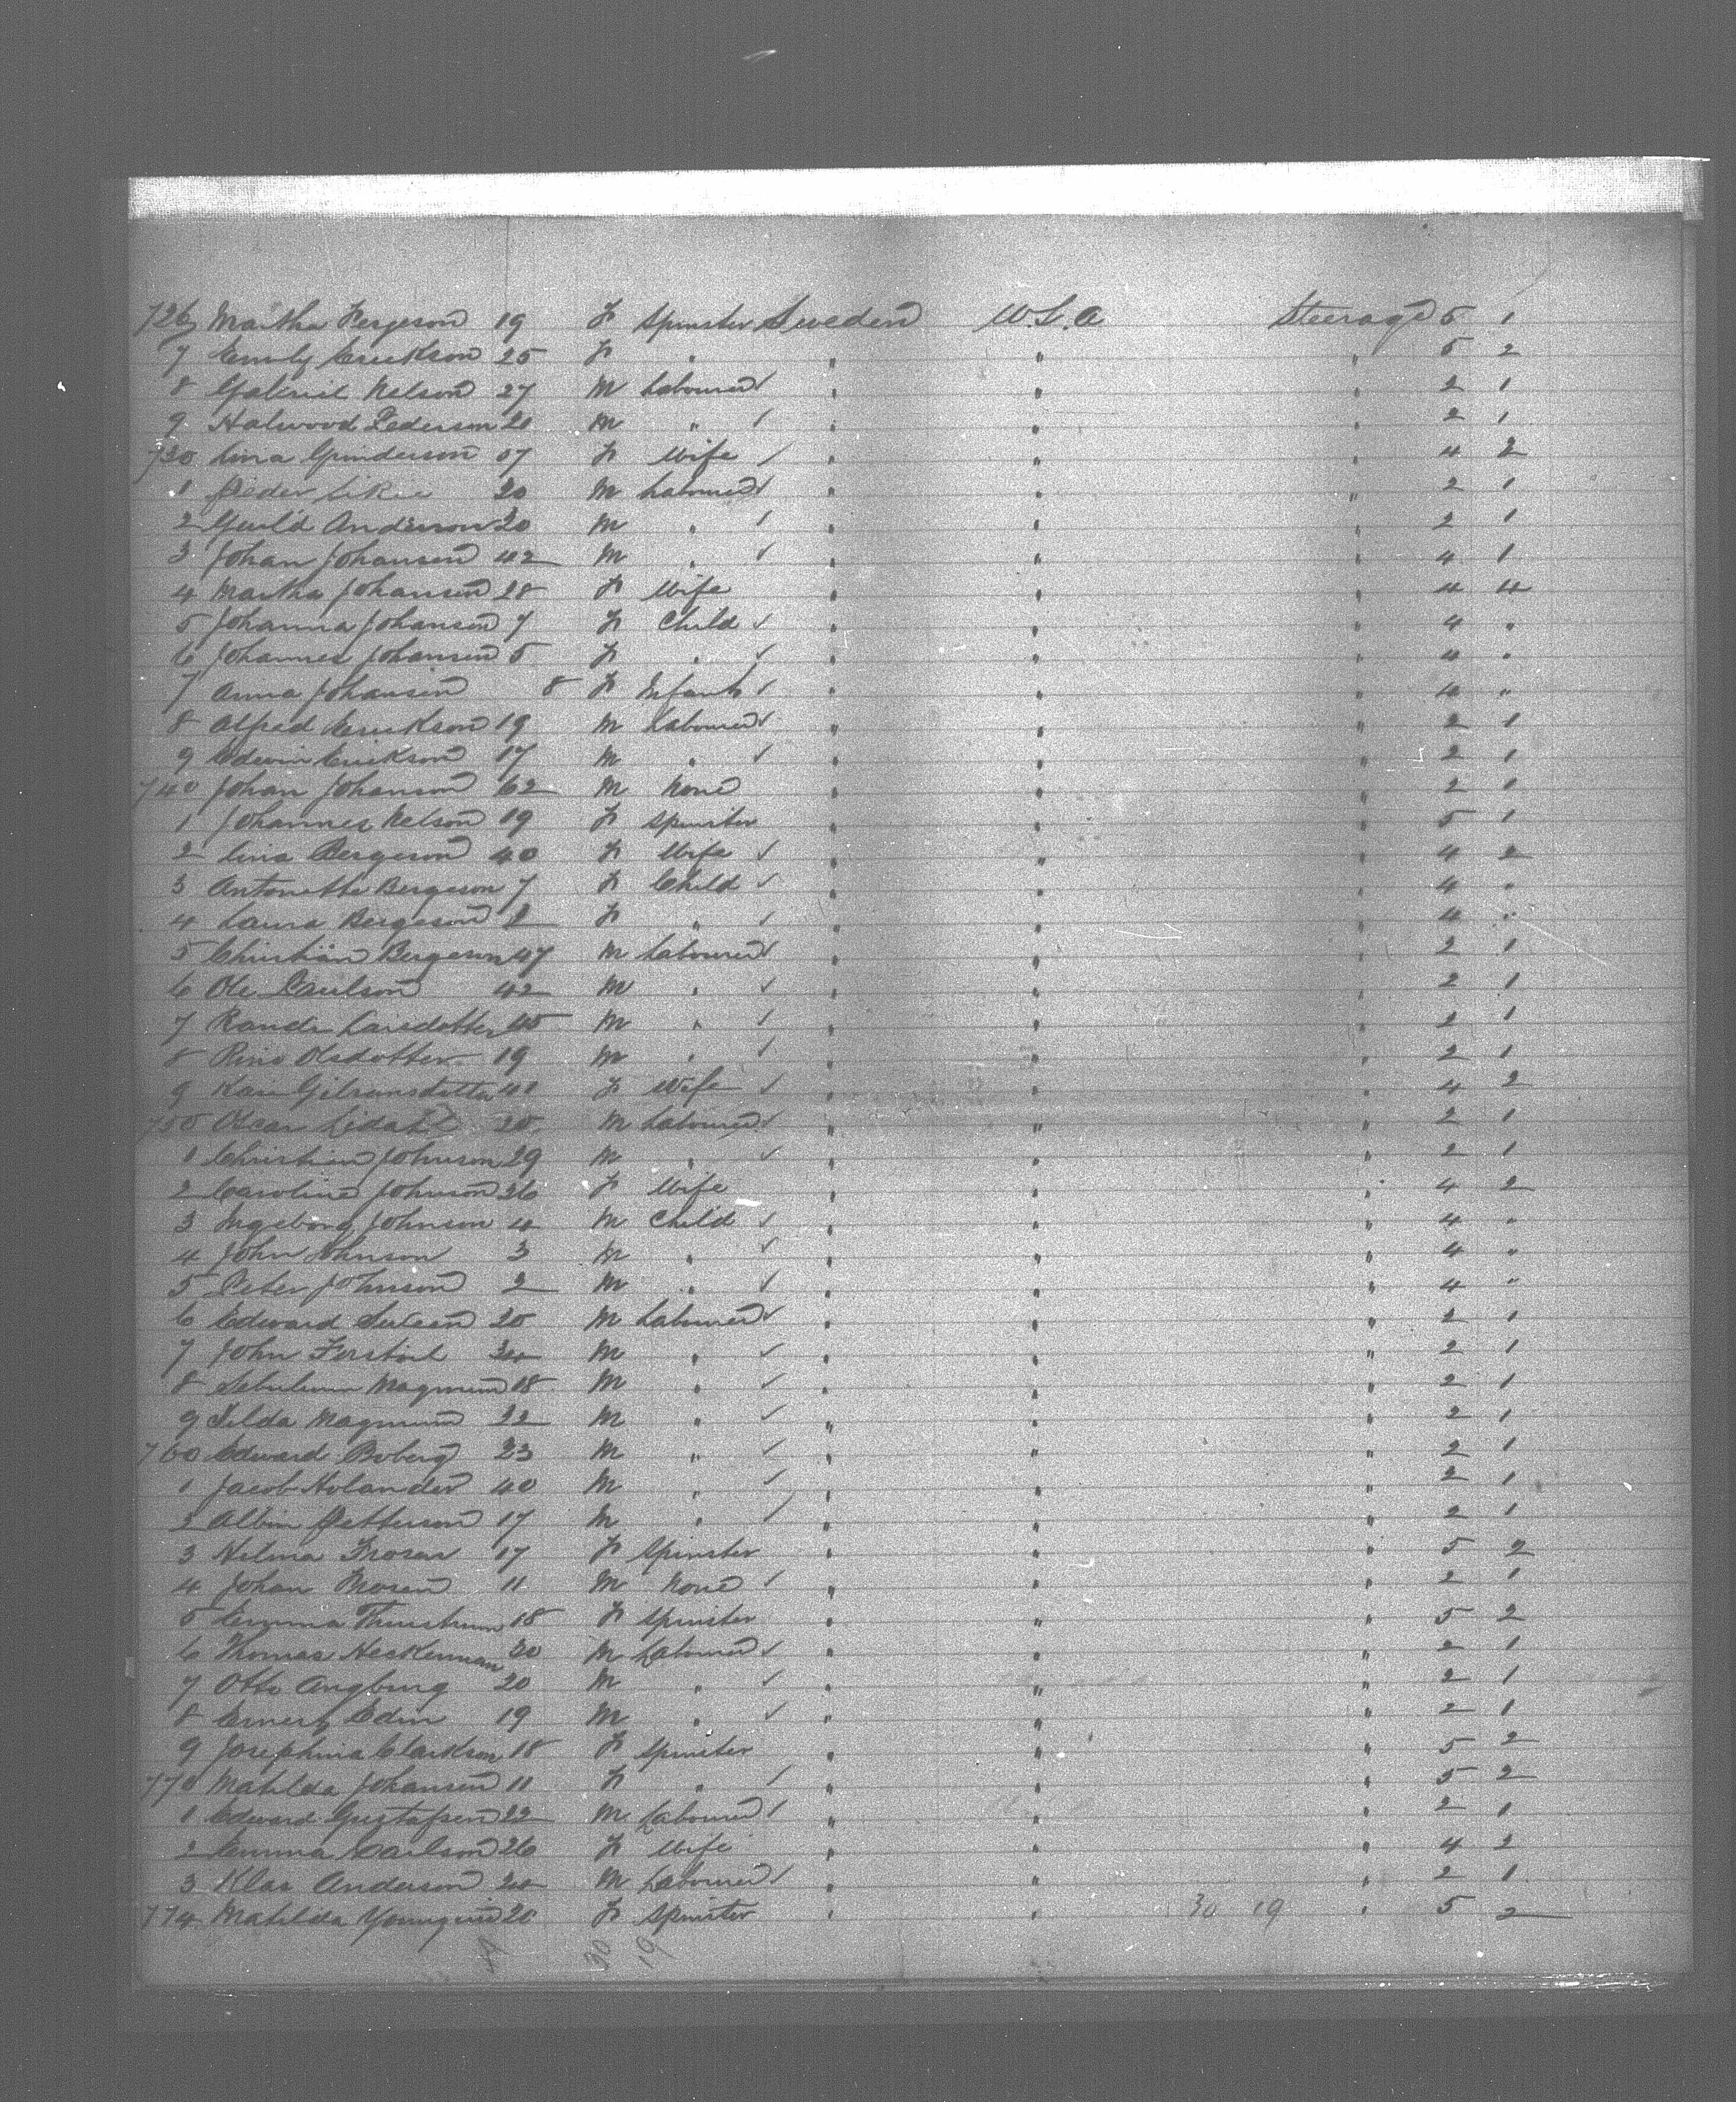 726 Martha Fergeson 19 F Spinster Sweden U.S.A Steerage 5 1
7 Emily Erickson 25 F " " " " 5 2
8 Gabriel Nelson 27 M Labourer ✓ " " " 2 1
9 Halwood Pederson 20 M " ✓ " " " 2 1
730 Lina Gunderson 07 F Wife ✓ " " " 4 2
1 Peder 20 M Labourer ✓ " " " 2 1
2 Anderson 20 M " ✓ " " " 2 1
3 Johan Johansen 42 M " ✓ " " " 4 1
4 Martha Johansen 28 F Wife " " " 4 4
5 Johanna Johansen 7 F Child ✓ " " " 4 "
6 Johannes Johansen 5 F " ✓ " " " 4 "
7 Anna Johansen 8 F Infant ✓ " " " 4 "
8 Alfred Erickson 19 M Labourer ✓ " " " 2 1
9 Edwin Erickson 17 M " ✓ " " " 2 1
740 Johan Johanson 62 M None " " " 2 1
1 Johannes Nelson 19 F Spinster " " " 5 1
2 Lina Bergeson 40 F Wife ✓ " " " 4 2
3 Antonette Bergeson 7 F Child ✓ " " " 4 "
4 Laura Bergeson F " ✓ " " " 4 "
5 Christian Bergeson 47 M Labourer ✓ " " " 2 1
6 Ole Paulson 42 M " ✓ " " " 2 1
7 Larsdotter 45 M " ✓ " " " 2 1
8 Olsdotter 19 M " ✓ " " " 2 1
9 Kari F Wife ✓ " " " 4 2
750 Oscar Lidahl 20 M Labourer ✓ " " " 2 1
1 Christian Johnson 29 M " ✓ " " " 2 1
2 Caroline Johnson 26 F Wife " " " 4 2
3 Ingeborg Johnson 4 M Child ✓ " " " 4 "
4 John Johnson 3 M " ✓ " " " 4 "
5 Peter Johnson 2 M " ✓ " " " 4 "
6 Edward 20 M Labourer ✓ " " " 2 1
7 John M " ✓ " " " 2 1
8 18 M " ✓ " " " 2 1
9 22 M " ✓ " " " 2 1
760 Edward Boberg 23 M " ✓ " " " 2 1
1 Jacob Holander 40 M " ✓ " " " 2 1
2 Albin Petterson 17 M " ✓ " " " 2 1
3 Helma 17 F Spinster " " " 5 2
4 Johan 11 M None ✓ " " " 2 1
5 Emma 18 F Spinster " " " 5 2
6 Thomas Heckenman 20 M Labourer ✓ " " " 2 1
7 Otto Angburg 20 M " ✓ " " " 2 1
8 Edin 19 M " ✓ " " " 2 1
9 Josephina Clarkson 18 F Spinster " " " 5 2
770 Matilda Johansen 11 F " ✓ " " " 5 2
1 Edward Gustafsen 22 M Labourer ✓ " " " 2 1
2 Emma Carlson 26 F Wife " " " 4 2
3 Klas Anderson M Labourer ✓ " " " 2 1
774 Matilda 20 F Spinster " " 30 19 " 5 2
30 19